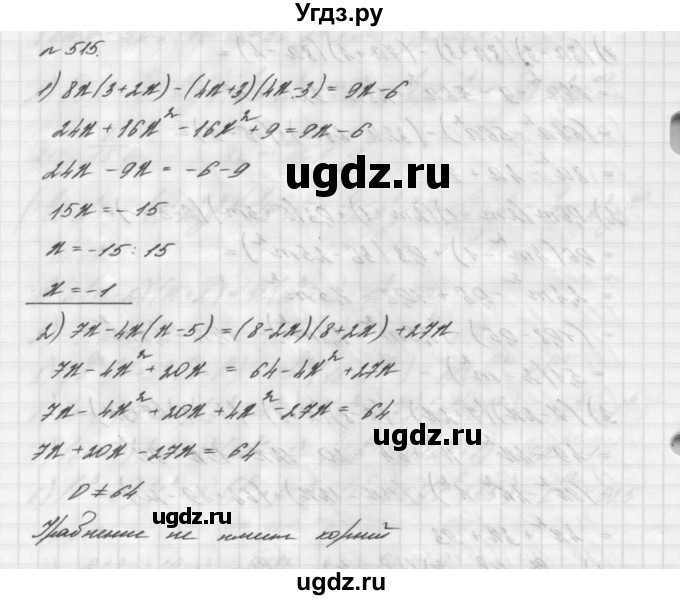 Угдз.ру
№ 515.
1) 8x(3+2x)-(4x+3)(4x-3)=9x-6
24x+16x²-16x²+9=9x-6
24x-9x=-6-9
ugdz.ru
15x=-15
x=-15:15
x=-1
2) 7x-4x(x-5)=(8-2x)(8+2x)+27x
7x-4x²+20x = 64-4x²+27x
7x-4x²+20x+4x²-27x=64
ugdz.ru
7x+20x-27x=64
0≠64
ugdz.ru
Уравнение не имеет корней
ugdz.ru